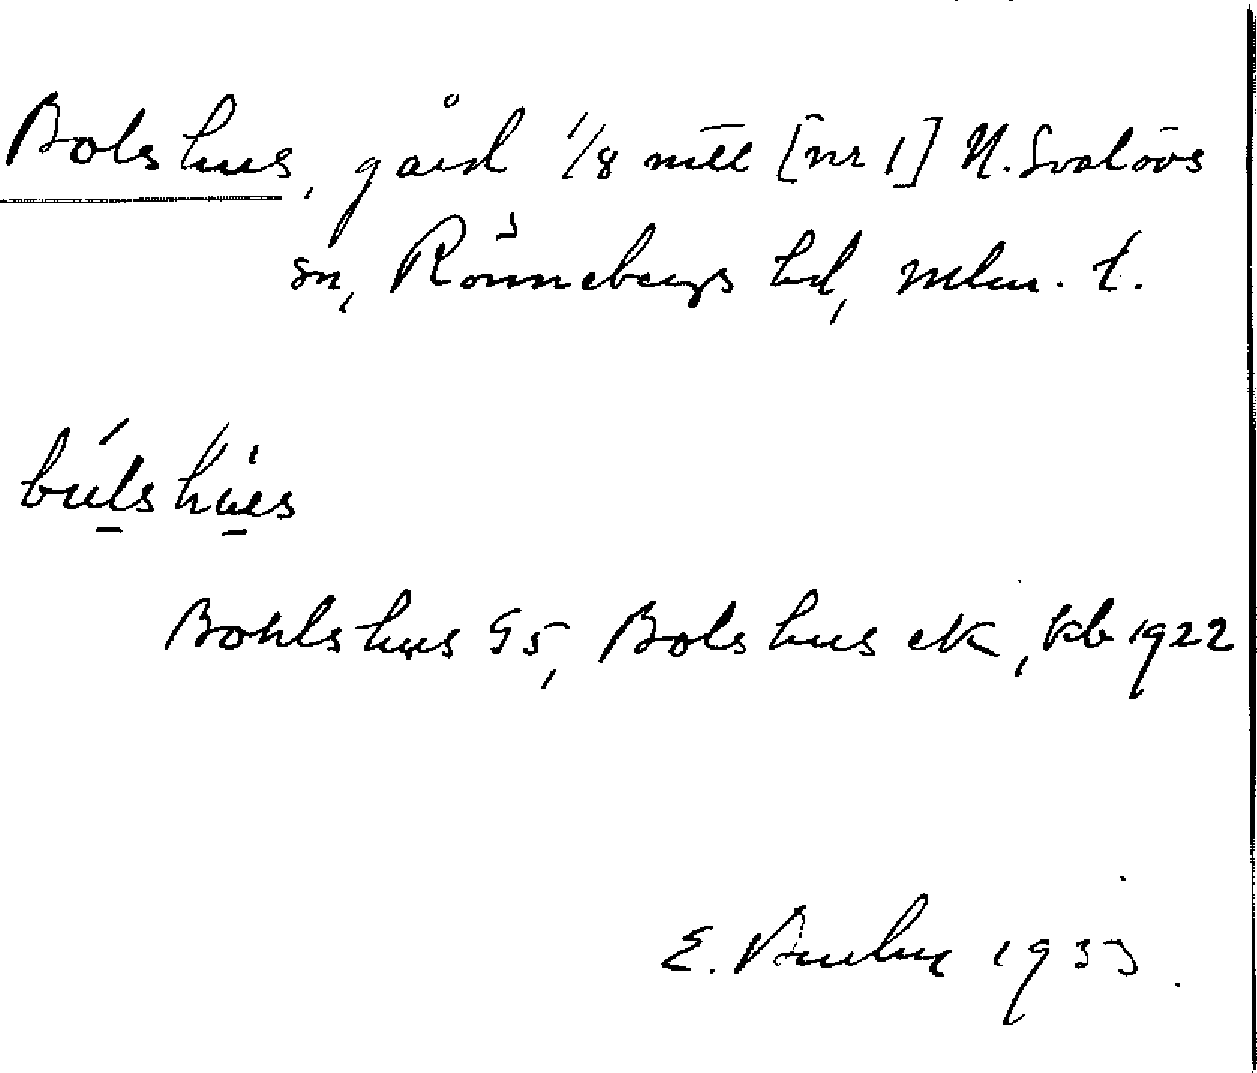 Bolshus, gård 1/8 mtl [nr 1] N. Svalövs
sn, Rönnebergs hd, Mlm. l.
búlshùs
Bohlshus G5, Bolshus ek, kb 1922
E. 1933